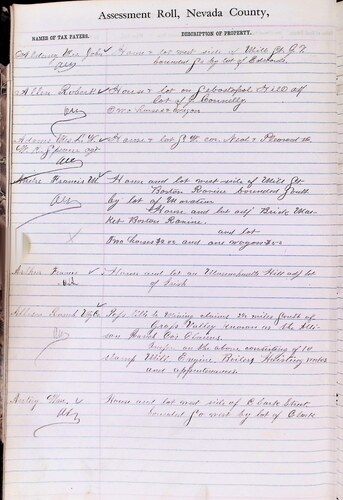 Assessment Roll, Nevada County,
NAMES OF TAX PAYERS.
DESCRIPTION OF PROPERTY.
Mrs John House & lot west side of Mill St. G.V.
bounded So by lot of Edwards
Allen Robert House & lot on Sebastopol Hill adj
lot of J. Connelly
Two horses & wagon
Adams Mrs L. W. House & lot S.W. cor. Neal & Pleasant sts
Francis M House and lot west side of Mill St
Boston Ravine bounded South
by lot of
House and lot adj Brick Mar-
ket Boston Ravine.
and lot
Two horses and one wagon
House and lot on Massachusetts Hill adj lot
of
Allison Ranch Poss title to mining claims 2½ miles South of
Grass Valley known as the Alli-
son Ranch Co's Claims.
Imps on the above consisting of 12
stamp Mill, Engine, Boilers, Hoisting works
and appurtenances
House and lot west side of Clark Street
bounded So west by lot of Clark